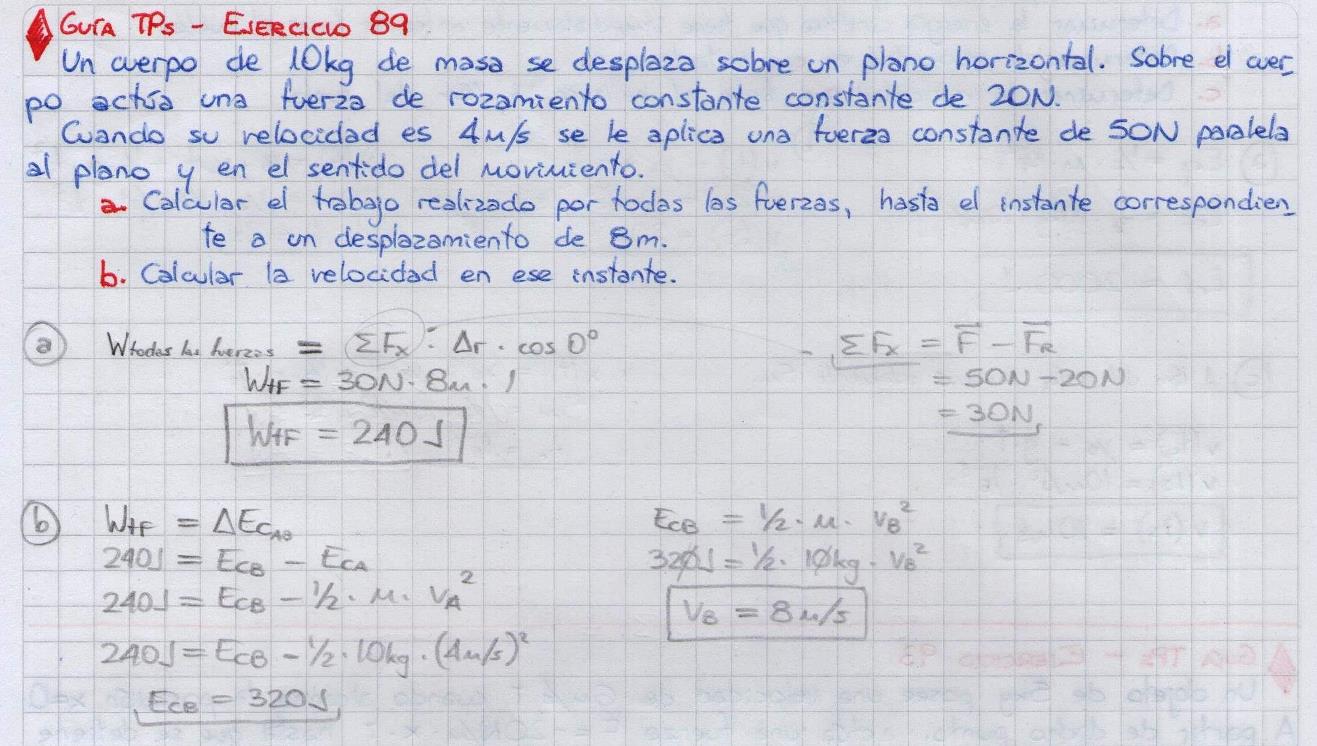 GUÍA TPs - EJERCICIO 89
Un cuerpo de 10kg de masa se desplaza sobre un plano horizontal. Sobre el cuer_
po actúa una fuerza de rozamiento constante constante de 20N.
Cuando su velocidad es 4m/s se le aplica una fuerza constante de 50N paralela
al plano y en el sentido del movimiento.
a. Calcular el trabajo realizado por todas las fuerzas, hasta el instante correspondien_
te a un desplazamiento de 8m.
b. Calcular la velocidad en ese instante.
a Wtodas las fuerzas = ΣFx · Δr · cos 0°
WtF = 30N · 8m · 1
WtF = 240J
ΣFx = F - FR
= 50N - 20N
= 30N
b WtF = ΔEcAB
240J = EcB - EcA
240J = EcB - 1/2 · m · vA²
240J = EcB - 1/2 · 10kg · (4m/s)²
EcB = 320J
EcB = 1/2 · m · vB²
320J = 1/2 · 10kg · vB²
vB = 8m/s